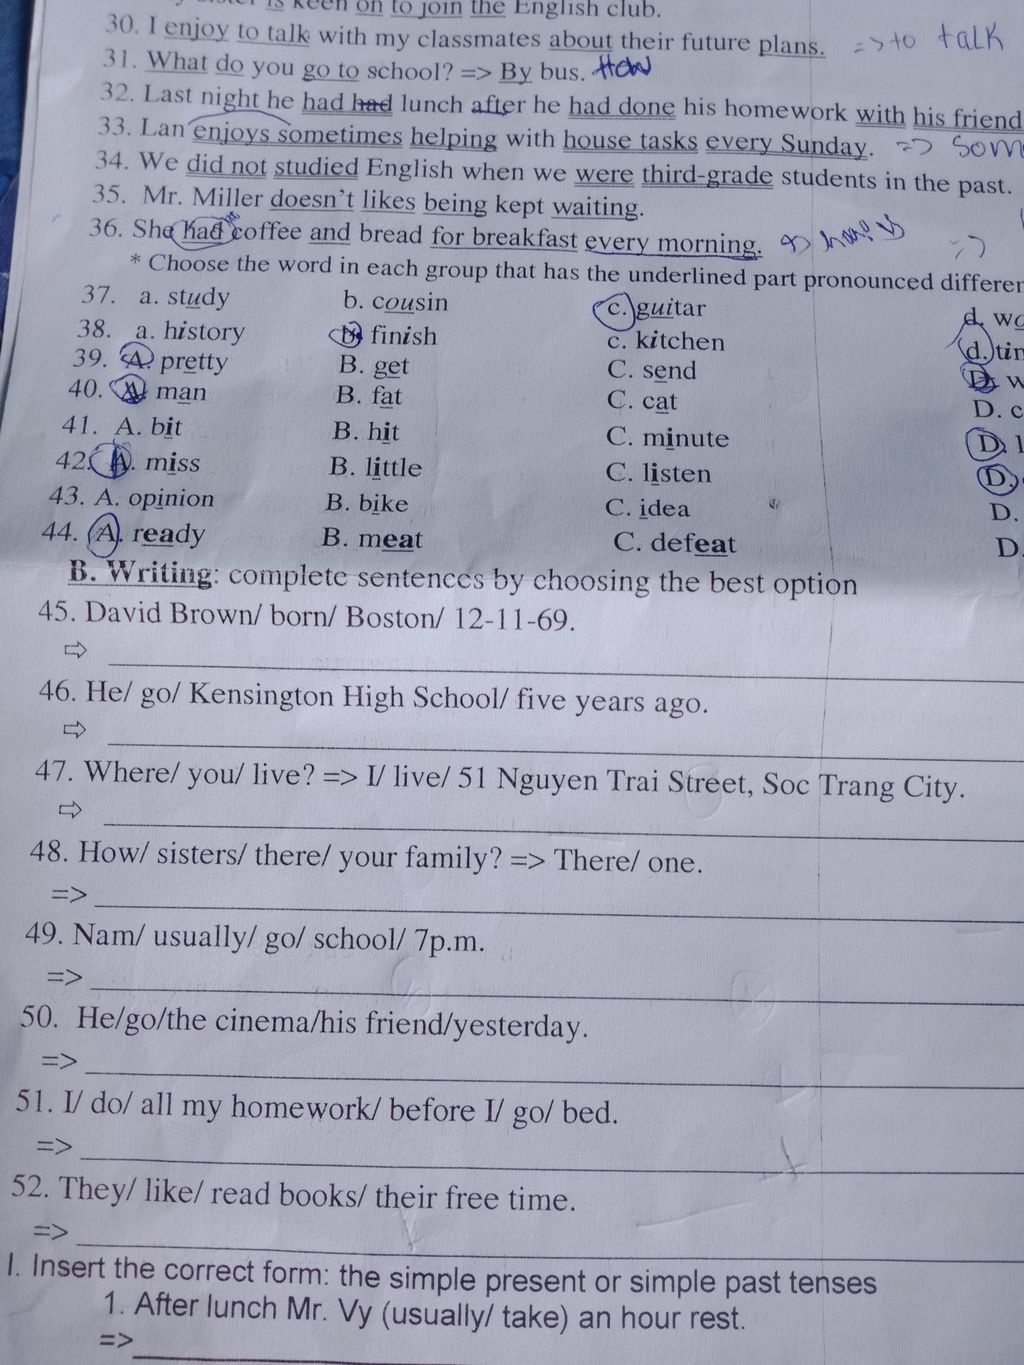 is keen on to join the English club.
30. I enjoy to talk with my classmates about their future plans. => to talk
31. What do you go to school? => By bus. How
32. Last night he had had lunch after he had done his homework with his friend
33. Lan enjoys sometimes helping with house tasks every Sunday. => Som
34. We did not studied English when we were third-grade students in the past.
35. Mr. Miller doesn't likes being kept waiting.
36. She had coffee and bread for breakfast every morning. =>
* Choose the word in each group that has the underlined part pronounced differen
37. a. study b. cousin c. guitar d. wo
38. a. history b. finish c. kitchen d. tin
39. A. pretty B. get C. send D. w
40. A. man B. fat C. cat D. c
41. A. bit B. hit C. minute D. l
42. A. miss B. little C. listen D.
43. A. opinion B. bike C. idea D.
44. A. ready B. meat C. defeat D.
B. Writing: complete sentences by choosing the best option
45. David Brown/ born/ Boston/ 12-11-69.
⇨
46. He/ go/ Kensington High School/ five years ago.
⇨
47. Where/ you/ live? => I/ live/ 51 Nguyen Trai Street, Soc Trang City.
⇨
48. How/ sisters/ there/ your family? => There/ one.
=>
49. Nam/ usually/ go/ school/ 7p.m.
=>
50. He/go/the cinema/his friend/yesterday.
=>
51. I/ do/ all my homework/ before I/ go/ bed.
=>
52. They/ like/ read books/ their free time.
=>
I. Insert the correct form: the simple present or simple past tenses
1. After lunch Mr. Vy (usually/ take) an hour rest.
=>